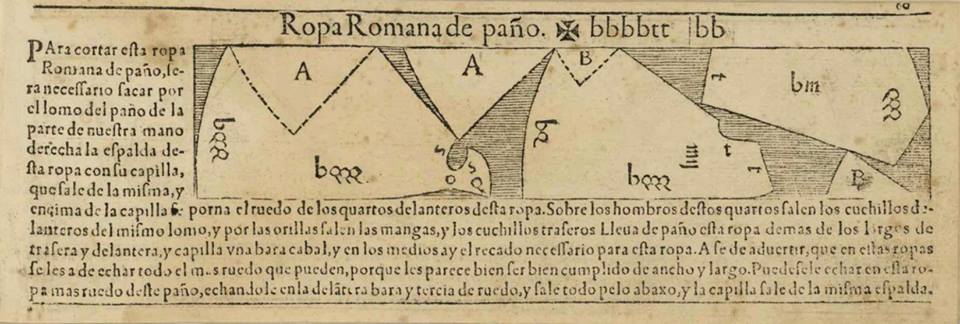 Ropa Romana de paño. ✠ bbbbtt bb
PAra cortar esta ropa
Romana de paño, se-
ra necessario sacar por
el lomo del paño de la
parte de nuestra mano
derecha la espalda de-
sta ropa con su capilla,
que sale de la misma, y
A
A
B
bm
t
t
t
B
s
s
o
o
encima de la capilla se porna el ruedo de los quartos delanteros desta ropa. Sobre los hombros destos quartos salen los cuchillos de-
lanteros del mismo lomo, y por las orillas salen las mangas, y los cuchillos traseros Lleua de paño esta ropa demas de los largos de
trasera y delantera, y capilla vna bara cabal, y en los medios ay el recado necessario para esta ropa. A se de aduertir, que en estas ropas
se les a de echar todo el mas ruedo que pueden, porque les parece bien ser bien cumplido de ancho y largo. Puedesele echar en esta ro-
pa mas ruedo deste paño, echandole en la delãtera bara y tercia de ruedo, y sale todo pelo abaxo, y la capilla sale de la misma espalda.